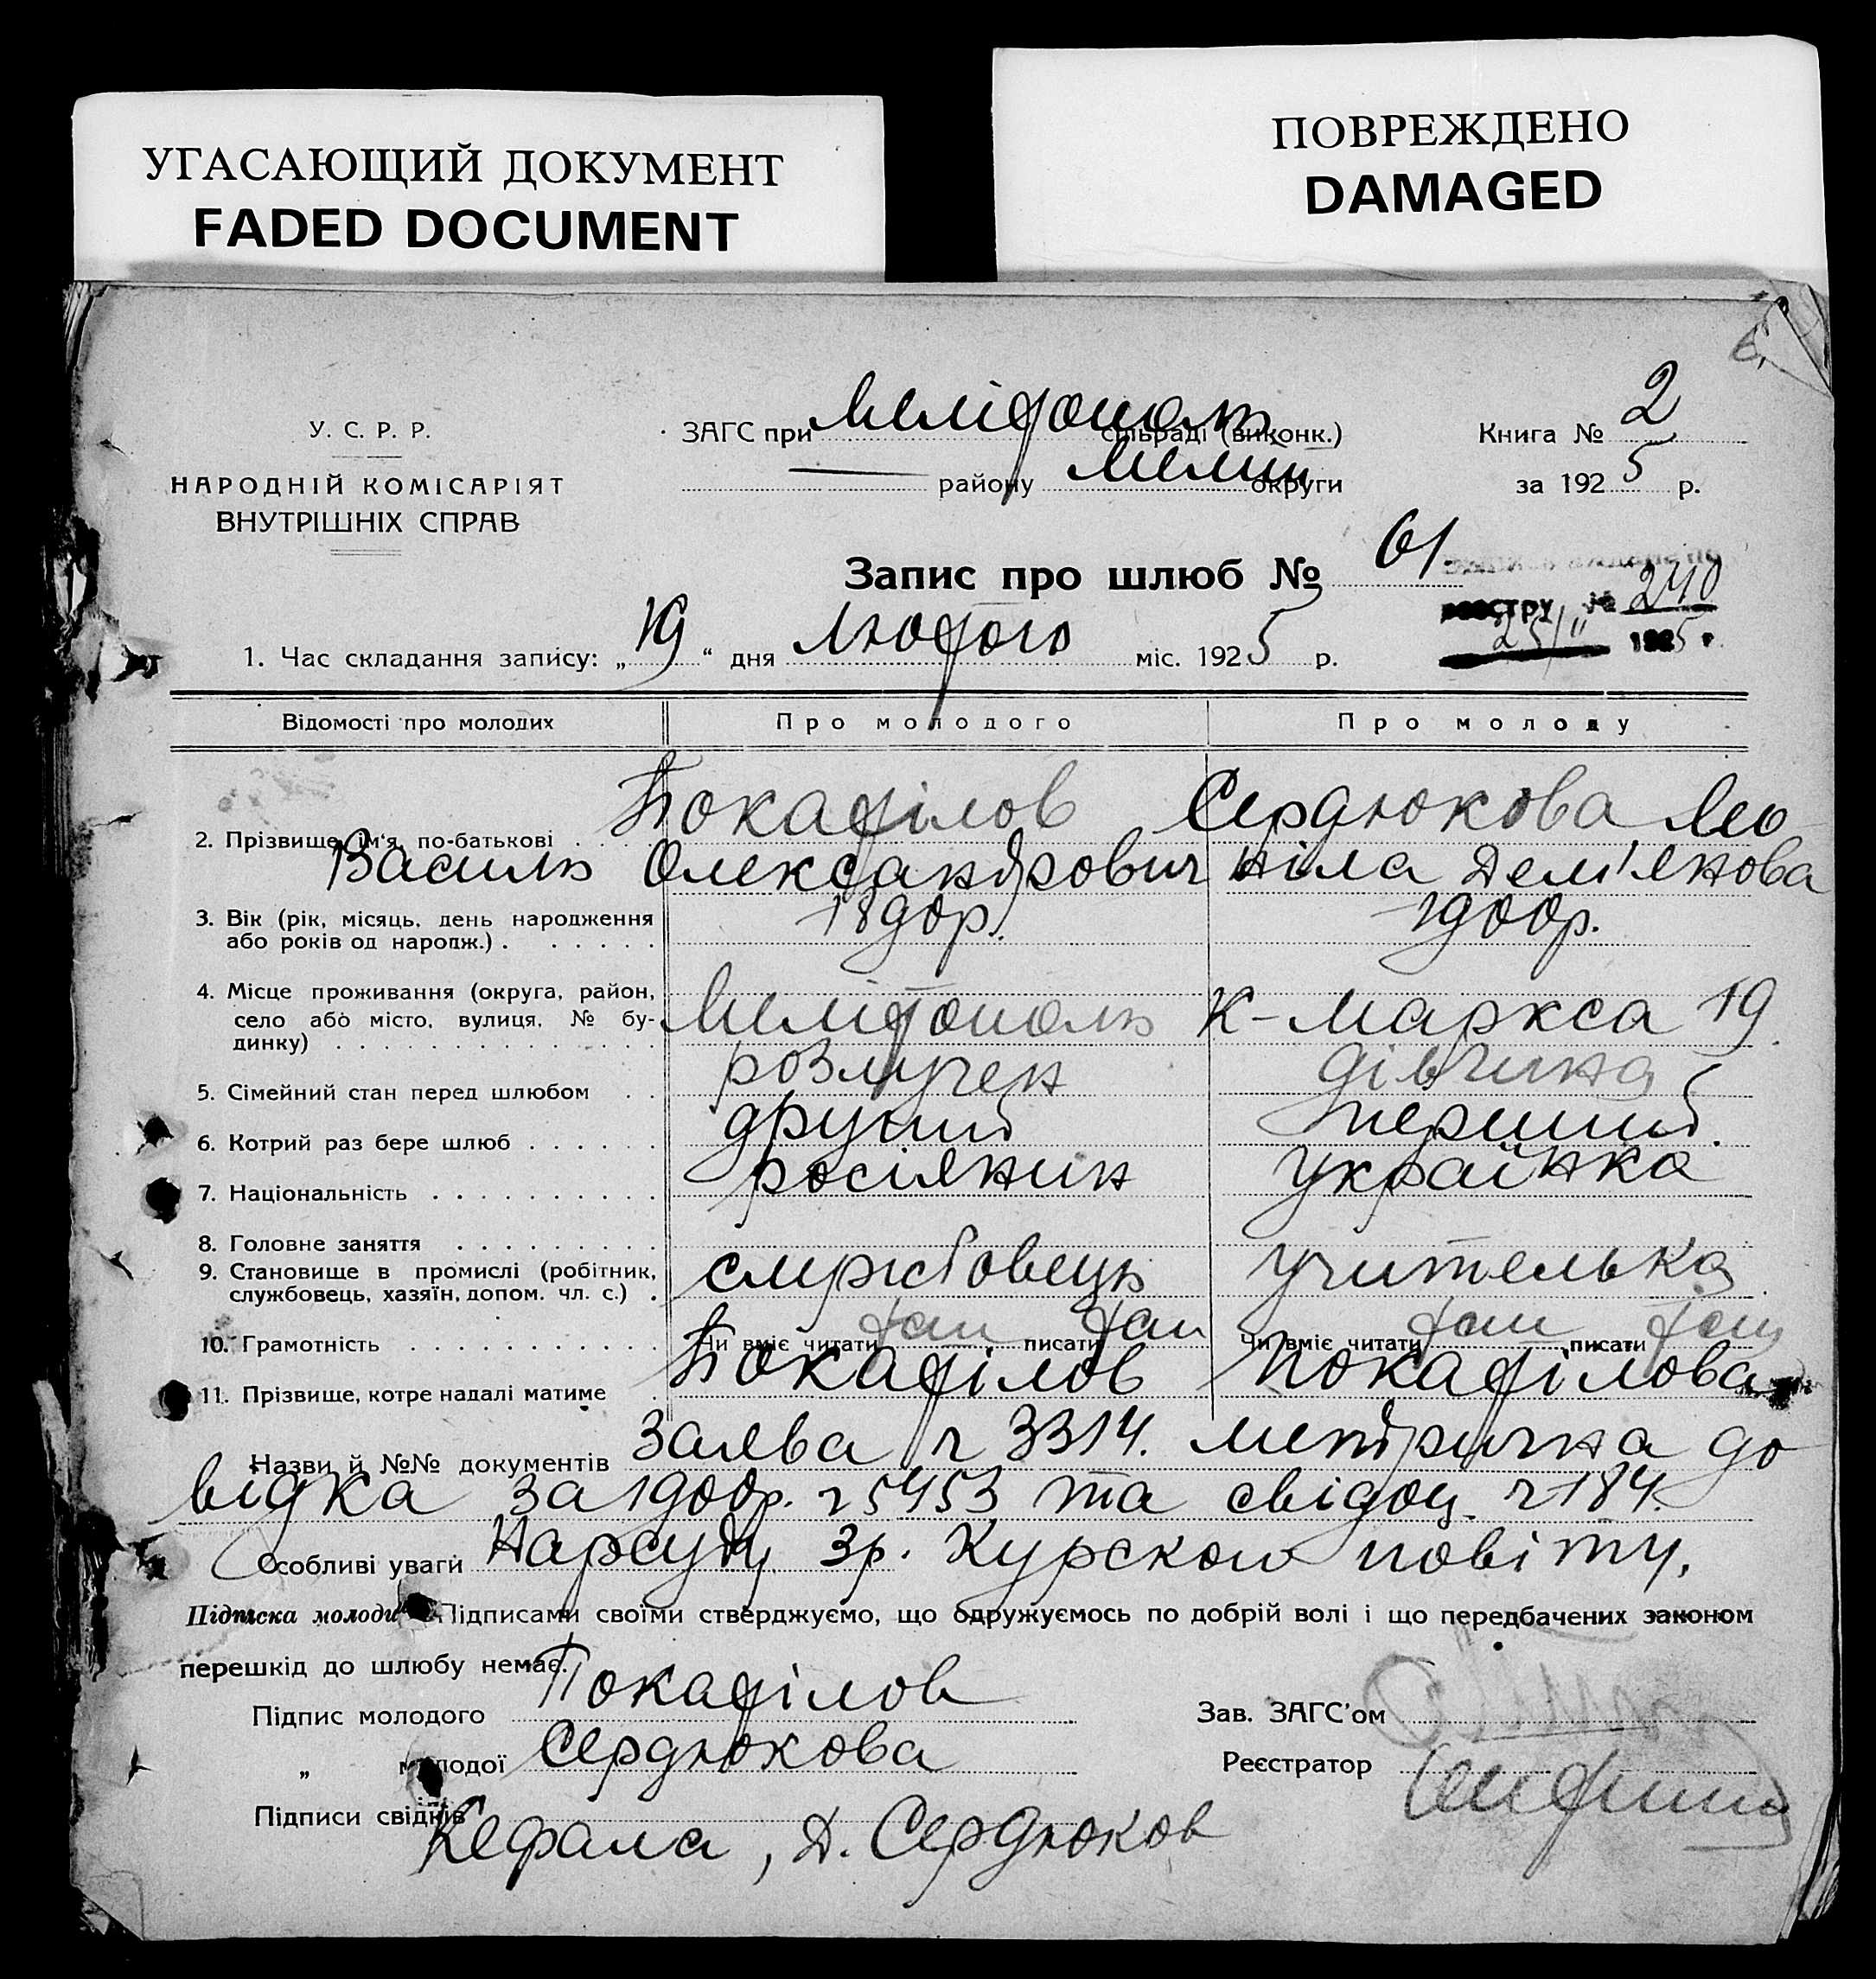 УГАСАЮЩИЙ ДОКУМЕНТ
FADED DOCUMENT
ПОВРЕЖДЕНО
DAMAGED
У. С. Р. Р.
НАРОДНІЙ КОМІСАРІЯТ
ВНУТРІШНІХ СПРАВ
ЗАГС при Мелітополь сільраді (виконк.)
— району Меліт округи
Книга № 2
за 1925 р.
Запис про шлюб № 61
РЕЄСТРУ № 240
25/II 1925 г.
1. Час складання запису: „19“ дня Лютого міс. 1925 р.
Відомості про молодих Про молодого Про молоду
2. Прізвище, ім'я, по-батькові Покатілов Сердюкова Лео
Василь Олександрович ніла Дем'янова
3. Вік (рік, місяць, день народження
або років од народж.) 18 р. 1900р.
4. Місце проживання (округа, район,
село або місто, вулиця, № бу-
динку) Мелітополь К-Маркса 19.
5. Сімейний стан перед шлюбом розлучен дівчина
6. Котрий раз бере шлюб другий перший.
7. Національність росіянин українка
8. Головне заняття
9. Становище в промислі (робітник,
службовець, хазяїн, допом. чл. с.) службовець учителька
10. Грамотність Чи вміє читати так писати так Чи вміє читати так писати так
11. Прізвище, котре надалі матиме Покатілов Покатілова
Назви й №№ документів Заява ч 3314. метрична до
відка за 1900р. ч 5453 та свідоц. ч 184.
Особливі уваги Нарсуду 3р. Курском повіту.
Підписка молодих Підписами своїми стверджуємо, що одружуємось по добрій волі і що передбачених законом
перешкід до шлюбу немає.
Підпис молодого Покатілов
„ молодої Сердюкова
Підписи свідків Кефала, Д. Сердюков
Зав. ЗАГС'ом
Реєстратор